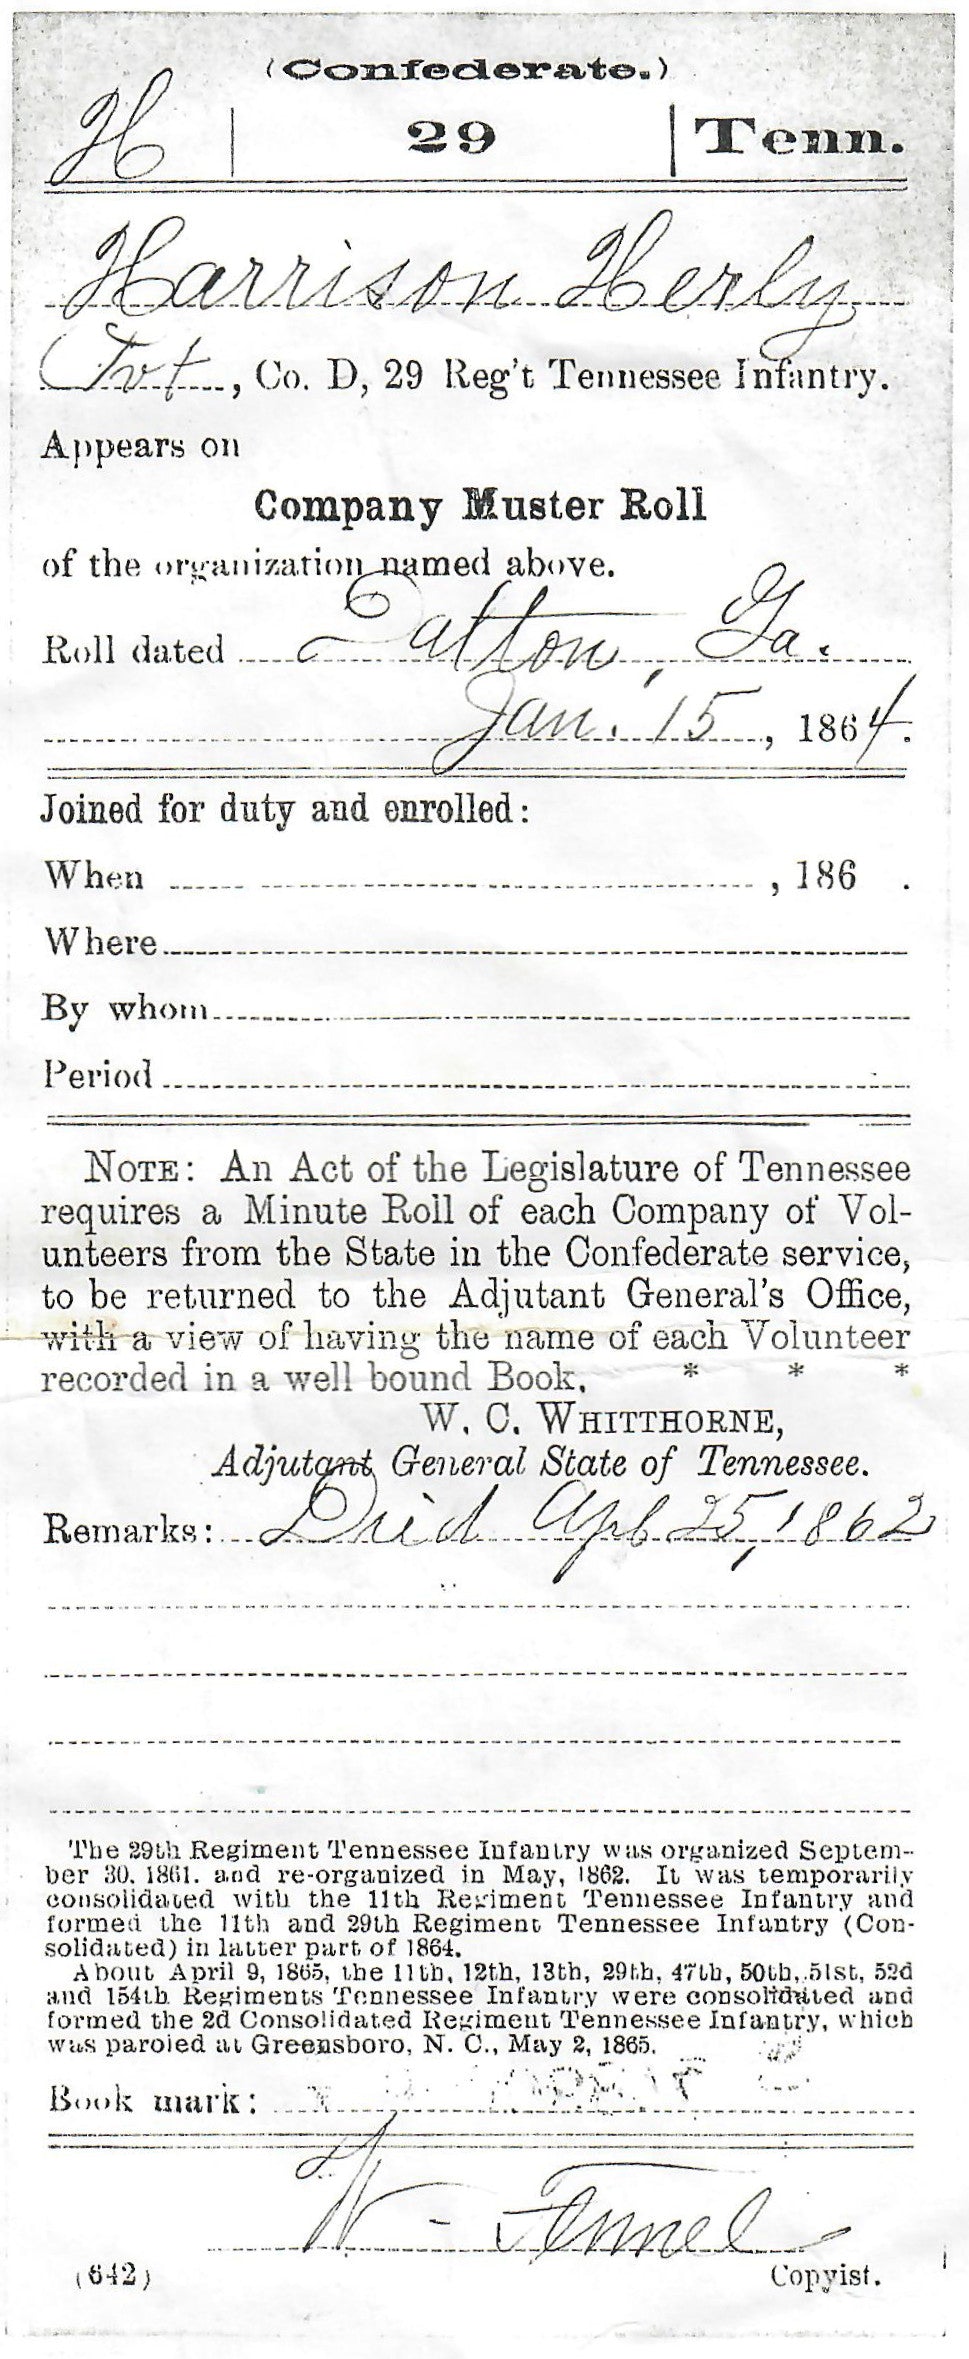 (Confederate.)
H | 29 | Tenn.
Harrison Herly
Pvt, Co. D, 29 Reg't Tennessee Infantry.
Appears on
Company Muster Roll
of the organization named above.
Roll dated Dalton, Ga.
Jan. 15, 1864.
Joined for duty and enrolled:
When , 186 .
Where
By whom
Period
NOTE: An Act of the Legislature of Tennessee
requires a Minute Roll of each Company of Vol-
unteers from the State in the Confederate service,
to be returned to the Adjutant General's Office,
with a view of having the name of each Volunteer
recorded in a well bound Book. * * *
W. C. WHITTHORNE,
Adjutant General State of Tennessee.
Remarks: Died Apl 25, 1862
The 29th Regiment Tennessee Infantry was organized Septem-
ber 30, 1861, and re-organized in May, 1862. It was temporarily
consolidated with the 11th Regiment Tennessee Infantry and
formed the 11th and 29th Regiment Tennessee Infantry (Con-
solidated) in latter part of 1864.
About April 9, 1865, the 11th, 12th, 13th, 29th, 47th, 50th, 51st, 52d
and 154th Regiments Tennessee Infantry were consolidated and
formed the 2d Consolidated Regiment Tennessee Infantry, which
was paroled at Greensboro, N. C., May 2, 1865.
Book mark:
W - Fennel
(642) Copyist.